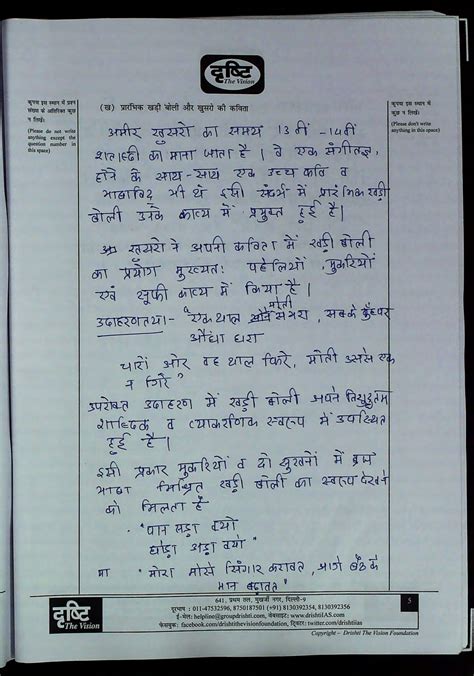 दृष्टि
The Vision
कृपया इस स्थान में प्रश्न
संख्या के अतिरिक्त कुछ
न लिखें।
(Please do not write
anything except the
question number in
this space)
(ख) प्रारंभिक खड़ी बोली और खुसरो की कविता
कृपया इस स्थान में
कुछ न लिखें।
(Please don't write
anything in this space)
अमीर खुसरो का समय 13वीं -14वीं
शताब्दी का माना जाता है। वे एक संगीतज्ञ,
होने के साथ-साथ एक उच्च कवि व
भाषाविद् भी थे इसी संदर्भ में प्रारंभिक खड़ी
बोली उनके काव्य में प्रयुक्त हुई है।
खुसरो ने अपनी कविता में खड़ी बोली
का प्रयोग मुख्यतः पहेलियों, मुकरियों
एवं सूफी काव्य में किया है।
उदाहरणतया- "एक थाल मोती से भरा, सबके
औंधा धरा
चारों ओर वह थाल फिरे, मोती उससे एक
न गिरे"
उपरोक्त उदाहरण में खड़ी बोली अपने
शाब्दिक व व्याकरणिक स्वरूप में उपस्थित
हुई है।
इसी प्रकार मुकरियों व दो सुखनों में ब्रज
भाषा मिश्रित खड़ी बोली का स्वरूप देखने
को मिलता है
- "पान सड़ा क्यों
घोड़ा अड़ा क्यों"
या "मोरा मोसे सिंगार करावत, आगे बैठ के
मान बढ़ावत"
दृष्टि
The Vision
641, प्रथम तल, मुखर्जी नगर, दिल्ली-9
दूरभाष : 011-47532596, 8750187501 (+91) 8130392354, 8130392356
ई-मेल: helpline@groupdrishti.com, वेबसाइट: www.drishtiIAS.com
फेसबुक: facebook.com/drishtithevisionfoundation, ट्विटर: twitter.com/drishtiias
5
Copyright – Drishti The Vision Foundation